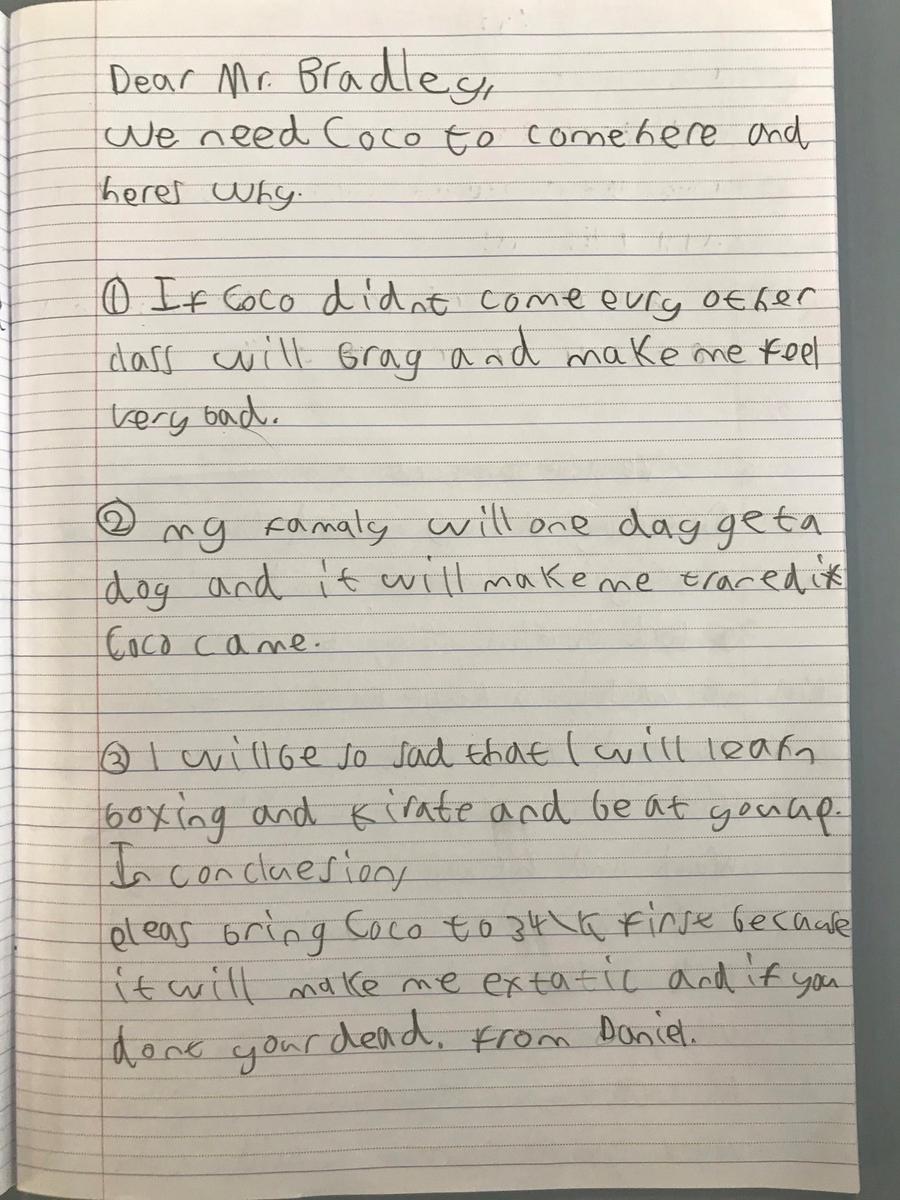 Dear Mr. Bradley,
We need Coco to come here and
heres why.
① If Coco didnt come evry other
class will brag and make me feel
very bad.
② my famaly will one day get a
dog and it will make me traned if
Coco came.
③ I will be so sad that I will learn
boxing and kirate and beat you up.
In concluesion,
pleas bring Coco to 34\K first because
it will make me extatic and if you
dont your dead. from Daniel.